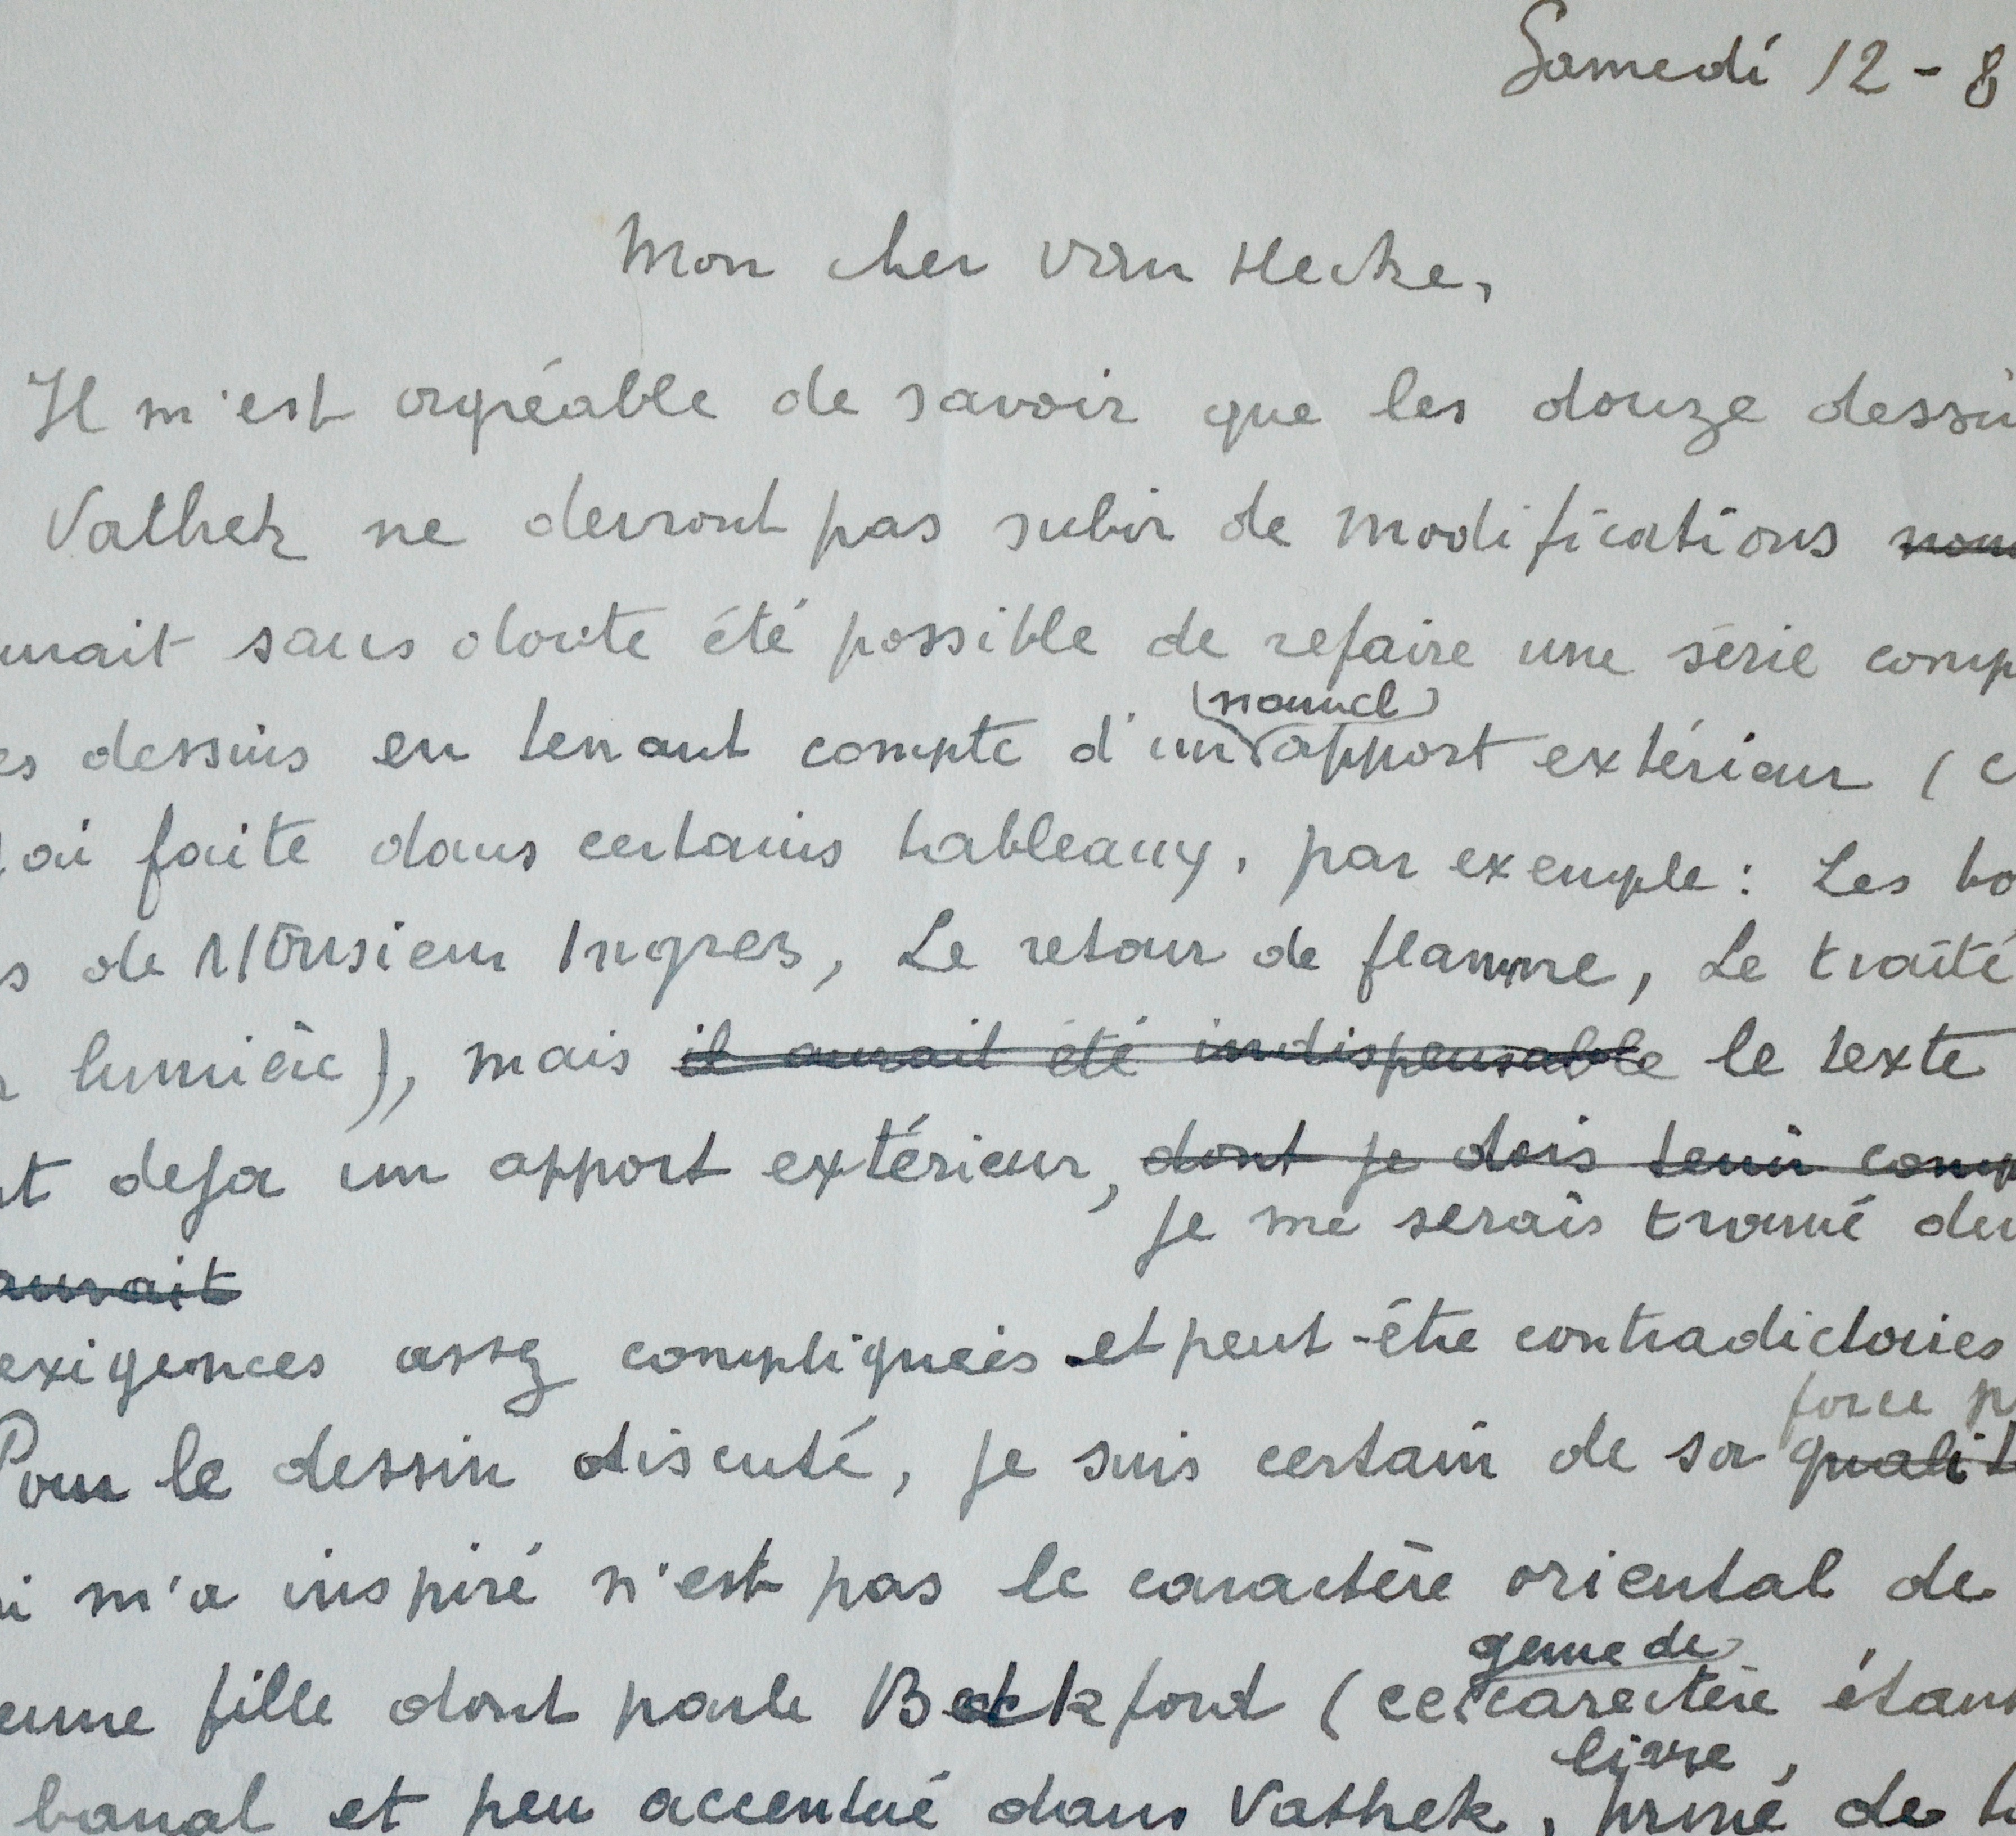 Samedi 12 - 8
Mon cher Van Hecke,
Il m'est agréable de savoir que les douze dessi
Vathek ne devront pas subir de modifications
urait sans doute été possible de refaire une série comp
nouvel
es dessins en tenant compte d'un apport extérieur (c
ai faite dans certains tableaux, par exemple : Les bo
s de Monsieur Ingres, Le retour de flamme, Le traité
lumière), mais il aurait été indispensable le texte
t deja un apport extérieur, dont je dois tenir comp
je me serais trouvé dev
aurait
exigences assez compliquées et peut-être contradictoires
force p
Pour le dessin discuté, je suis certain de sa qualit
i m'a inspiré n'est pas le caractère oriental de
genre de
eune fille dont parle Beckford (ce caractère étant
livre,
banal et peu accentué dans Vathek, de